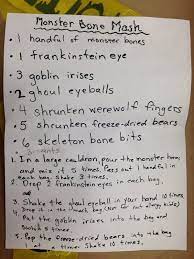 Monster Bone Mash
• 1 handful of monster bones
• 1 frankinstein eye
• 3 goblin irises
• 2 ghoul eyeballs
• 4 shrunken werewolf fingers
• 5 shrunken freeze-dried bears
• 6 skeleton bone bits
1. In a large cauldron, pour the monster bones
and mix it 5 times. Pass out 1 handful in
each bag. Shake 3 times.
2. Drop 2 frankinstein eyes in each bag
3. Shake the ghoul eyeball in your hand 10 times
Drop it in the bag
4. Put the goblin irises into the bag and
5 times.
5. Pop the freeze-dried bears into the bag
1 at a time. Shake 10 times.